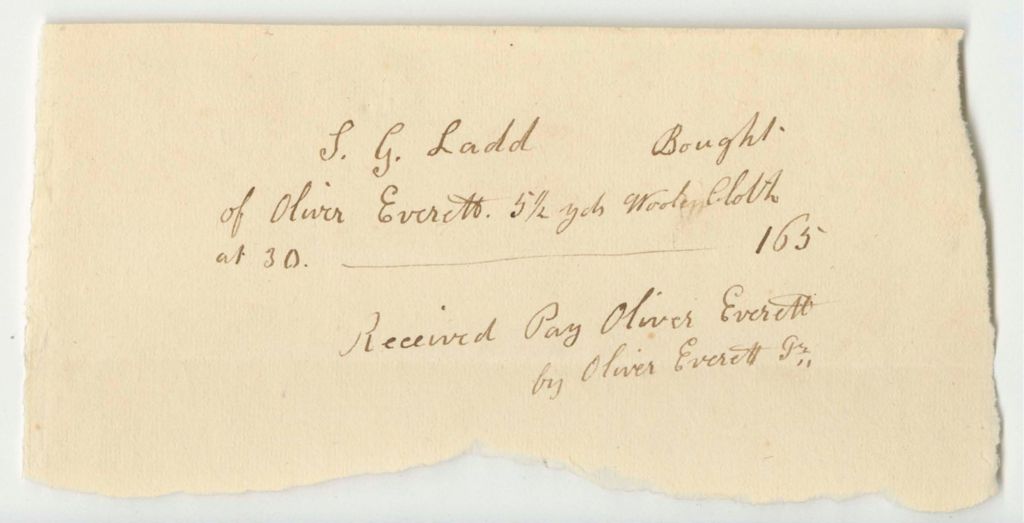 S. G. Ladd Bought
of Oliver Everett. 5½ yds Woolen Cloth
at 30. 165
Received Pay Oliver Everett
by Oliver Everett Jr.